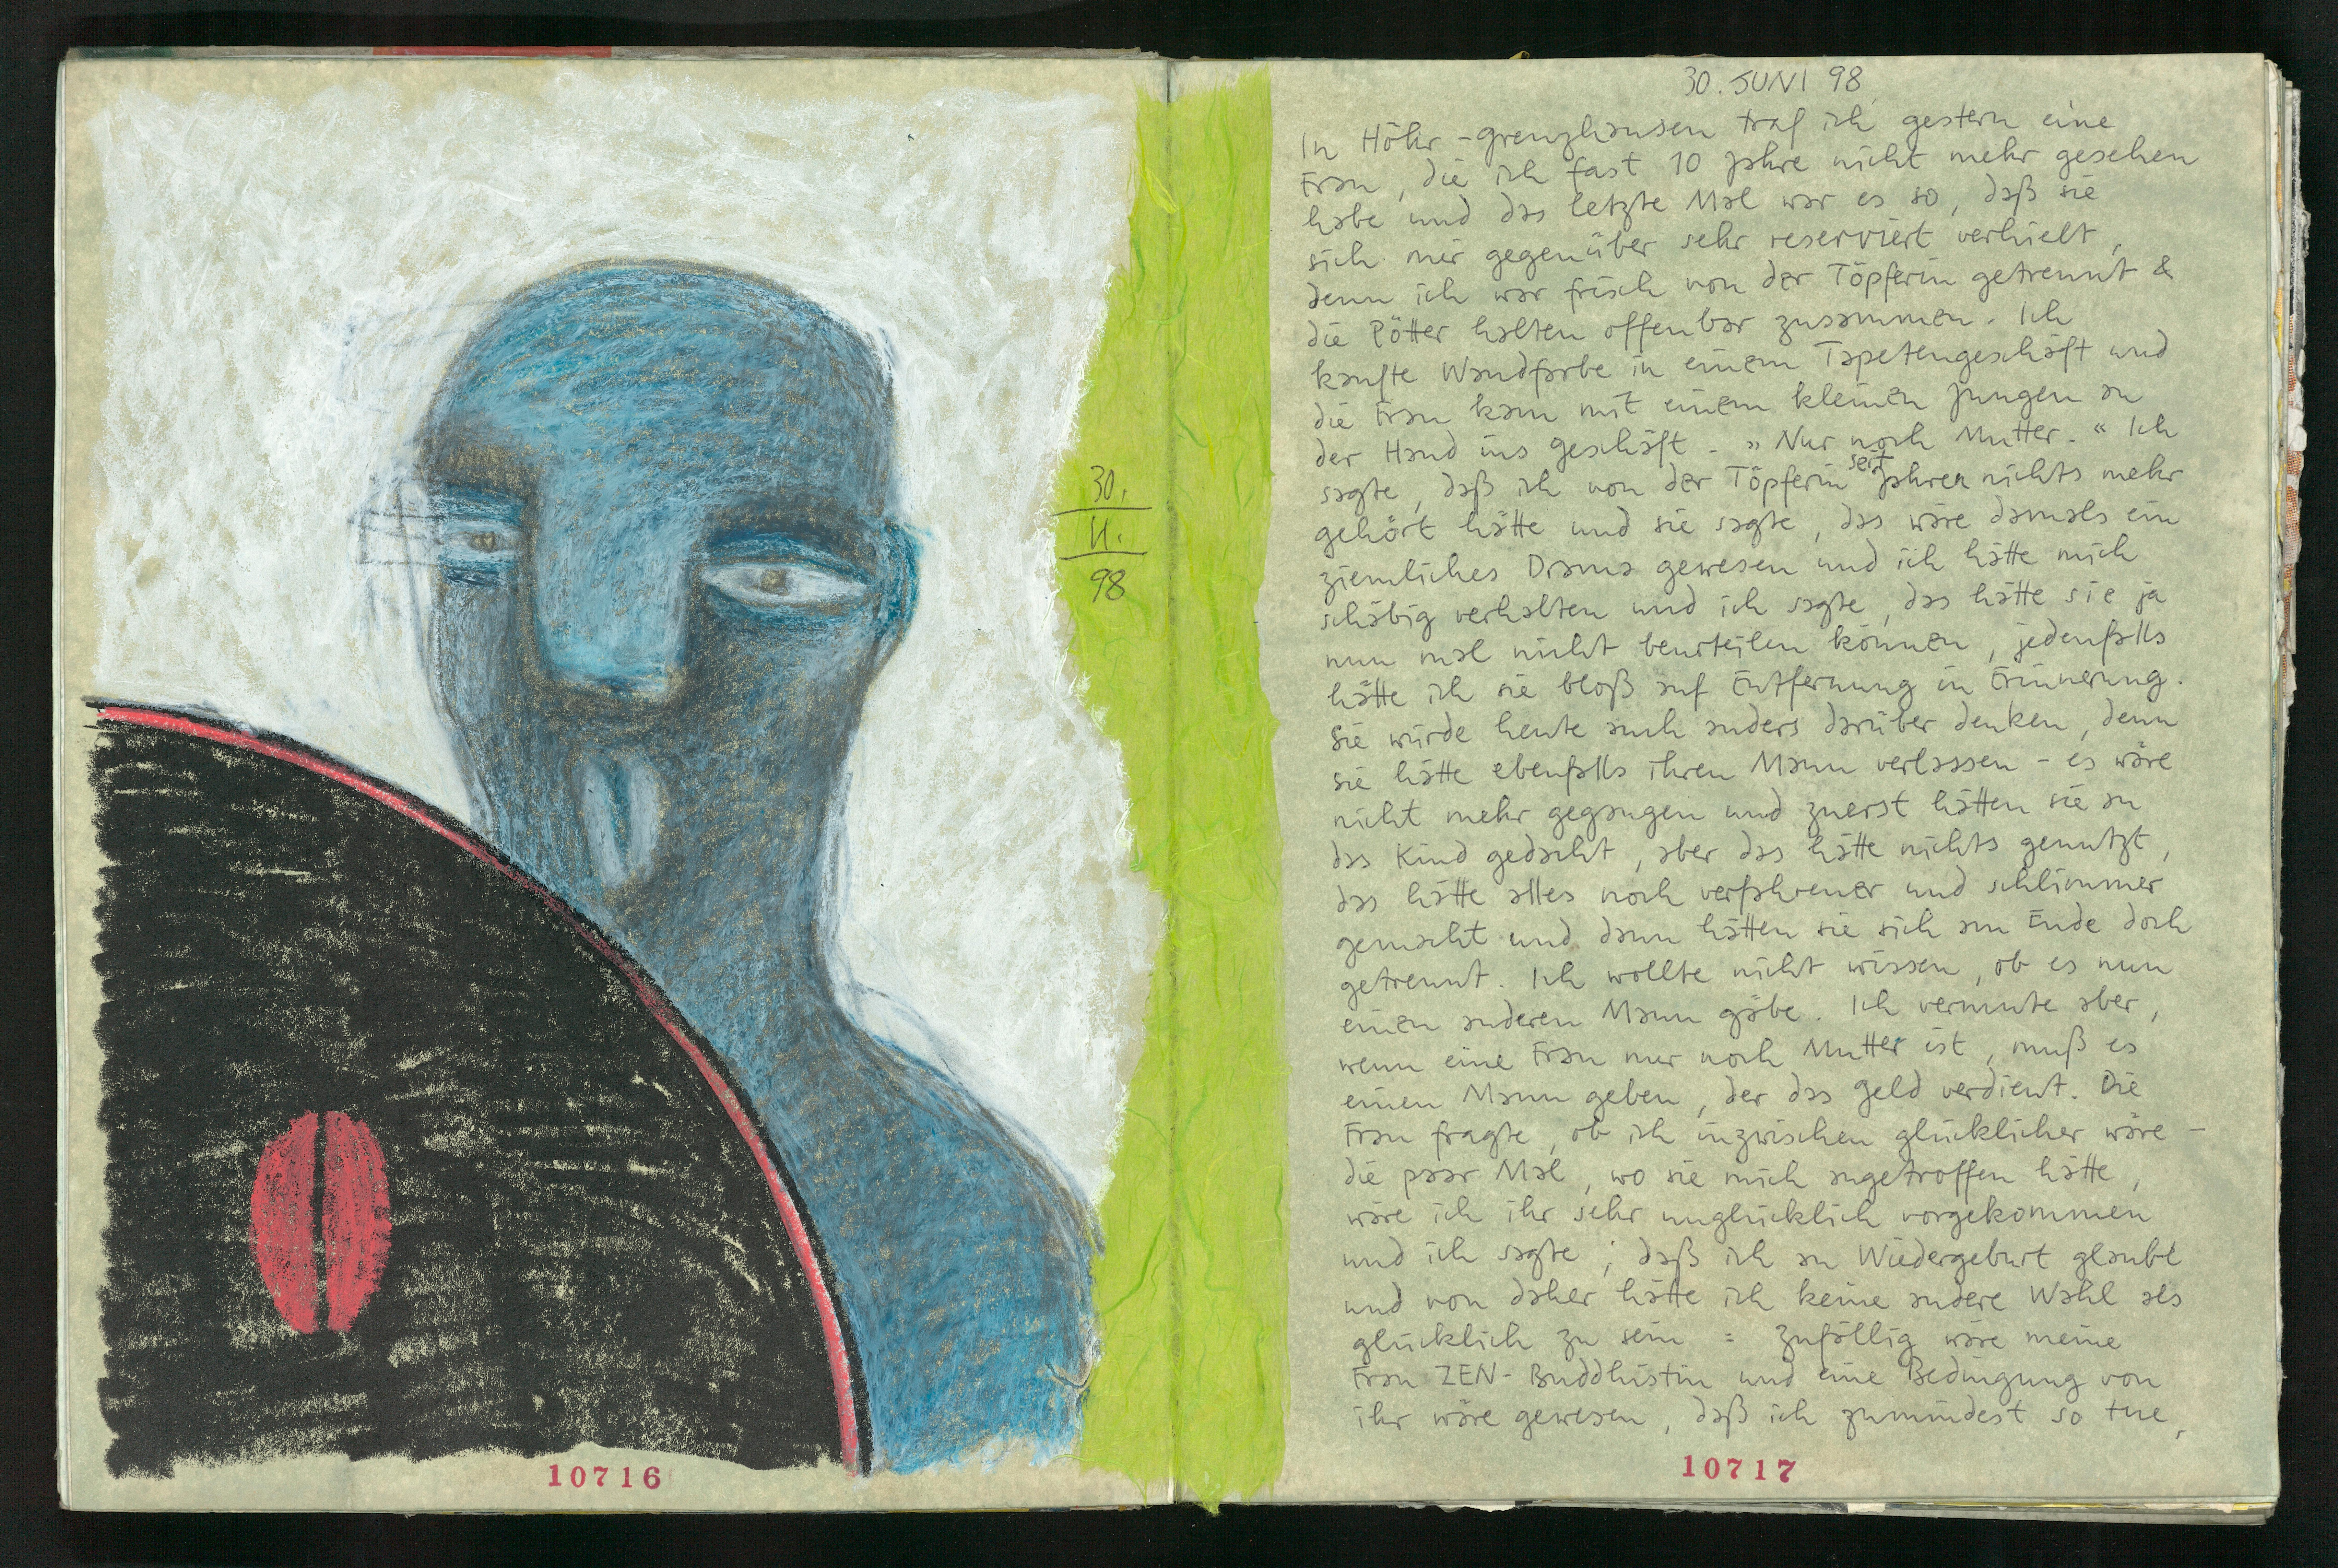 30.
11.
98
10716
30. JUNI 98
In Höhr-Grenzhausen traf ich gestern eine
Frau, die ich fast 10 Jahre nicht mehr gesehen
habe und das letzte Mal war es so, daß sie
sich mir gegenüber sehr reserviert verhielt,
denn ich war frisch von der Töpferin getrennt &
die Pötter halten offenbar zusammen. Ich
kaufte Wandfarbe in einem Tapetengeschäft und
die Frau kam mit einem kleinen Jungen an
der Hand ins Geschäft. „Nur noch Mutter." Ich
sagte, daß ich von der Töpferin seit Jahren nichts mehr
gehört hätte und sie sagte, das wäre damals ein
ziemliches Drama gewesen und ich hätte mich
schäbig verhalten und ich sagte, das hätte sie ja
nun mal nicht beurteilen können, jedenfalls
hätte ich sie bloß auf Entfernung in Erinnerung.
Sie würde heute auch anders darüber denken, denn
sie hätte ebenfalls ihren Mann verlassen - es wäre
nicht mehr gegangen und zuerst hätten sie an
das Kind gedacht, aber das hätte nichts genutzt,
das hätte alles noch verfahrener und schlimmer
gemacht und dann hätten sie sich am Ende doch
getrennt. Ich wollte nicht wissen, ob es nun
einen anderen Mann gäbe. Ich vermute aber,
wenn eine Frau nur noch Mutter ist, muß es
einen Mann geben, der das Geld verdient. Die
Frau fragte, ob ich inzwischen glücklicher wäre -
die paar Mal, wo sie mich angetroffen hätte,
wäre ich ihr sehr unglücklich vorgekommen
und ich sagte, daß ich an Wiedergeburt glaubte
und von daher hätte ich keine andere Wahl als
glücklich zu sein : zufällig wäre meine
Frau ZEN-Buddhistin und eine Bedingung von
ihr wäre gewesen, daß ich zumindest so tue,
10717